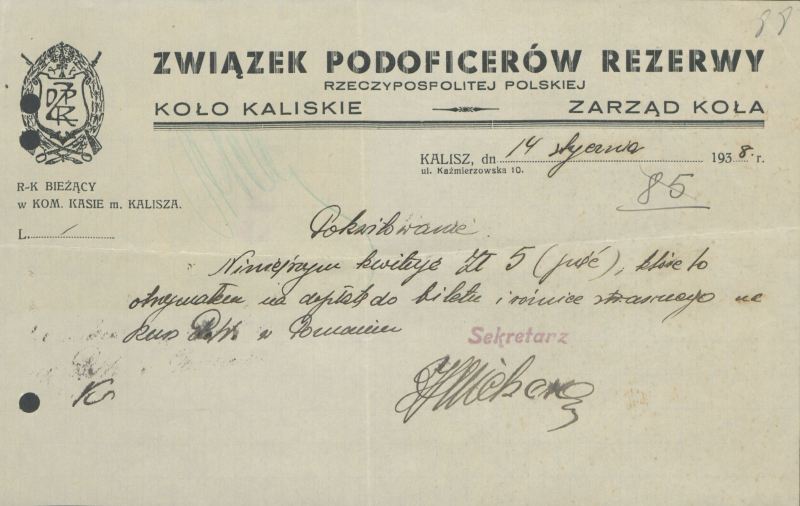 88
ZWIĄZEK PODOFICERÓW REZERWY
RZECZYPOSPOLITEJ POLSKIEJ
KOŁO KALISKIE ZARZĄD KOŁA
KALISZ, dn 14 stycznia 1938. r.
ul. Kaźmierzowska 10.
R-K BIEŻĄCY
w KOM. KASIE m. KALISZA.
L.
85
Pokwitowanie
Niniejszym kwituję Zł 5 (pięć), które to
otrzymałem na dopłatę do biletu i na
kurs w Poznaniu
Sekretarz